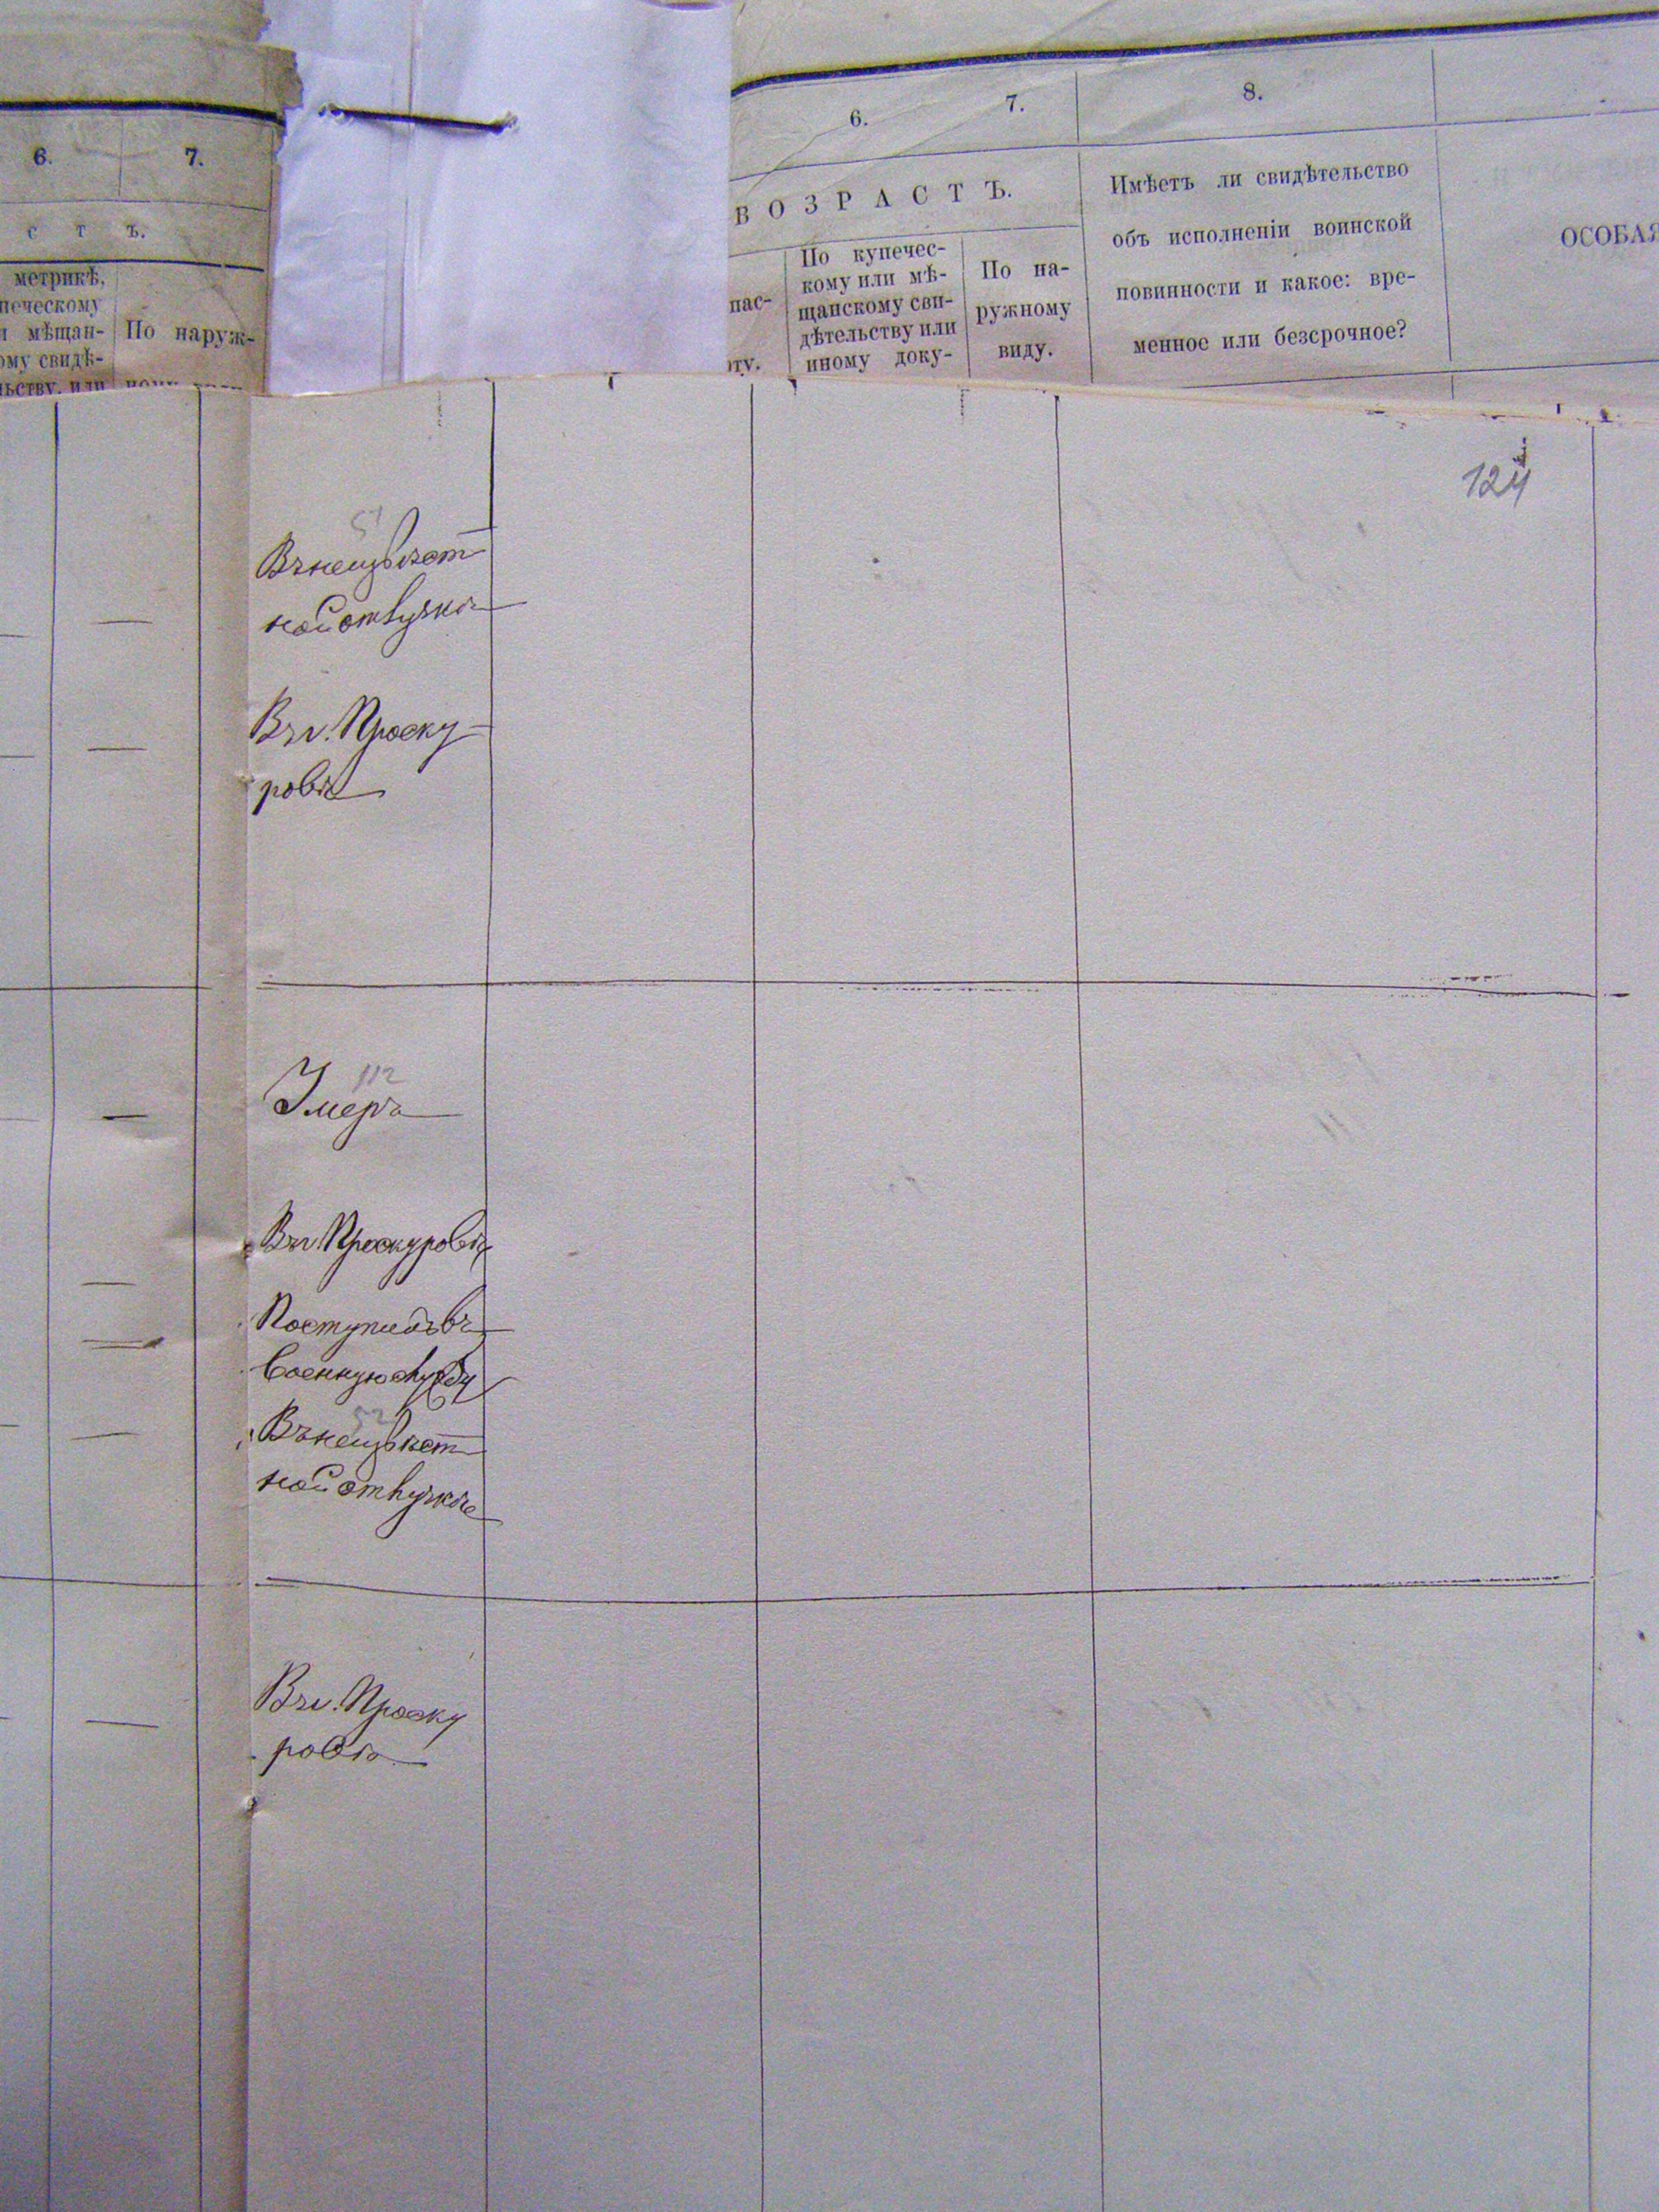 6.
7.
с т ъ.
метрикѣ,
печескому
и мѣщан-
ому свидѣ-
льству, или
По наруж-
6.
7.
8.
ВОЗРАСТЪ.
пас-
рту.
По купечес-
кому или мѣ-
щанскому сви-
дѣтельству или
иному доку-
По на-
ружному
виду.
Имѣетъ ли свидѣтельство
объ исполненіи воинской
повинности и какое: вре-
менное или безсрочное?
ОСОБАЯ
124
51
Въ неизвѣст
ной отлучкѣ
Въ г. Проску
ровѣ
112
Умеръ
Въ г. Проскуровѣ
Поступилъ въ
военную службу
52
Въ неизвѣст
ной отлучкѣ
Въ г. Проску
ровѣ